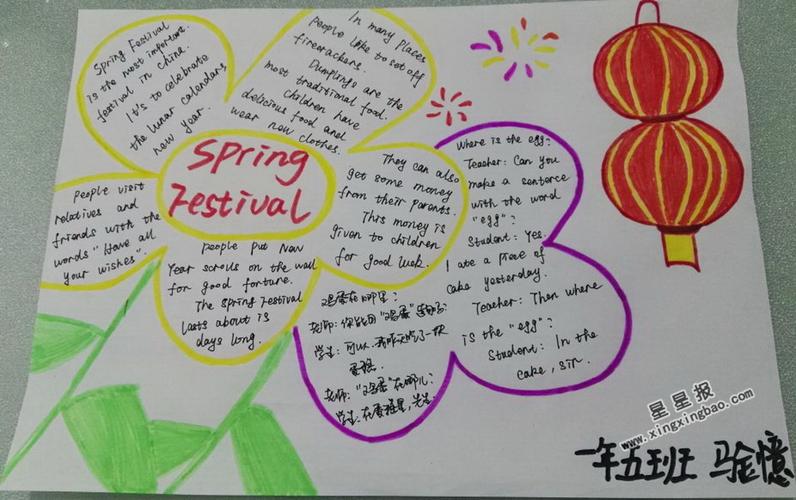 Spring Festival
Spring Festival
is the most important
festival in China.
It's to celebrate
the lunar calendars
new year.
In many places
people like to set off
firecrackers.
Dumplings are the
most traditional food.
Children have
delicious food and
wear new clothes.
They can also
get some money
from their parents.
This money is
given to children
for good luck.
people put New
Year scrolls on the wall
for good fortune.
The Spring Festival
lasts about is
days long.
people visit
relatives and
friends with the
words "Have all
your wishes".
Where is the egg?
Teacher: Can you
make a sentence
with the word
"egg"?
Student: Yes.
I ate a piece of
cake yesterday.
Teacher: Then where
is the "egg"?
Student: In the
cake, sir.
鸡蛋在哪里?
老师:你能用"鸡蛋"造句吗?
学生:可以.我昨天吃了一块
蛋糕.
老师:"鸡蛋"在哪儿?
学生:在蛋糕里,先生.
星星报
www.xingxingbao.com
一年五班